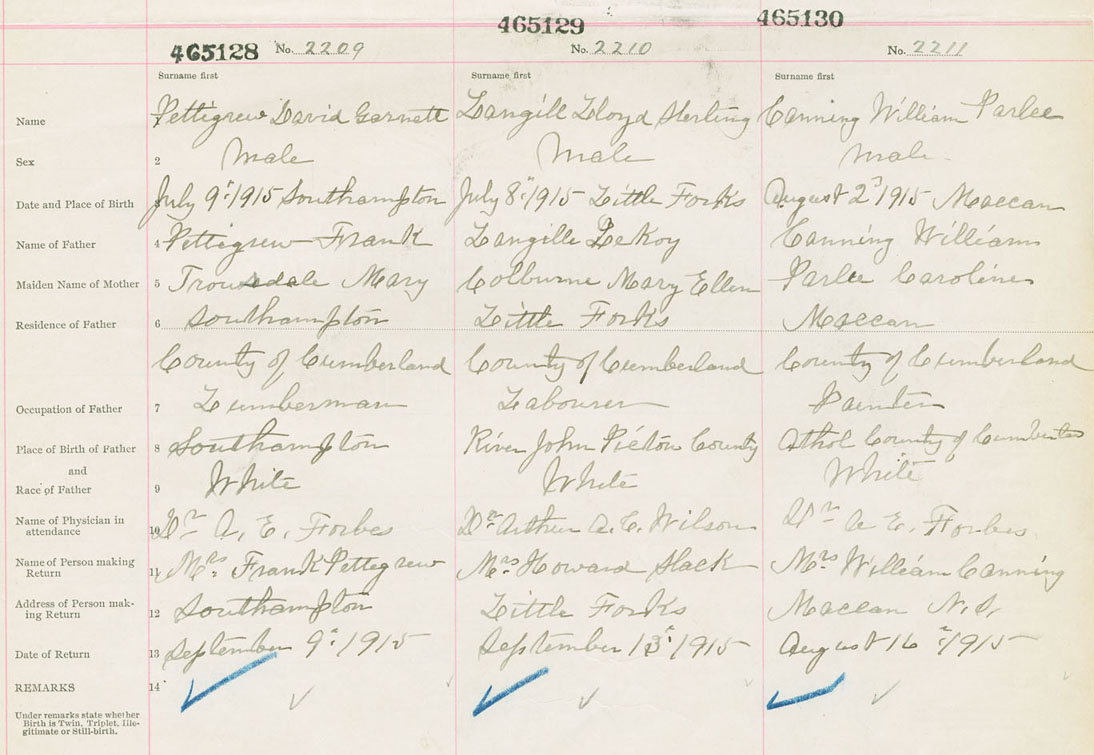 465128 465129 465130
No. 2209 No. 2210 No. 2211
Surname first Surname first Surname first
Name Pettigrew David Garnett Langill Lloyd Sterling Canning William Parlee
Sex 2 Male Male Male
Date and Place of Birth July 9" 1915 Southampton July 8" 1915 Little Forks August 2" 1915 Maccan
Name of Father 4 Pettigrew Frank Langille LeRoy Canning William
Maiden Name of Mother 5 Trousdale Mary Colburne Mary Ellen Parlee Caroline
Residence of Father 6 Southampton Little Forks Maccan
County of Cumberland County of Cumberland County of Cumberland
Occupation of Father 7 Lumberman Labourer Painter
Place of Birth of Father 8 Southampton River John Pictou County Athol County of
and
Race of Father 9 White White White
Name of Physician in
attendance 10 Dr A. E. Forbes Dr Arthur A. E. Wilson Dr A E. Forbes
Name of Person making
Return 11 Mrs. Frank Pettegrew Mrs Howard Slack Mrs William Canning
Address of Person mak-
ing Return 12 Southampton Little Forks Maccan N.S.
Date of Return 13 September 9" 1915 September 13" 1915 August 16" 1915
REMARKS 14
Under remarks state whether
Birth is Twin, Triplet, Ille-
gitimate or Still-birth.